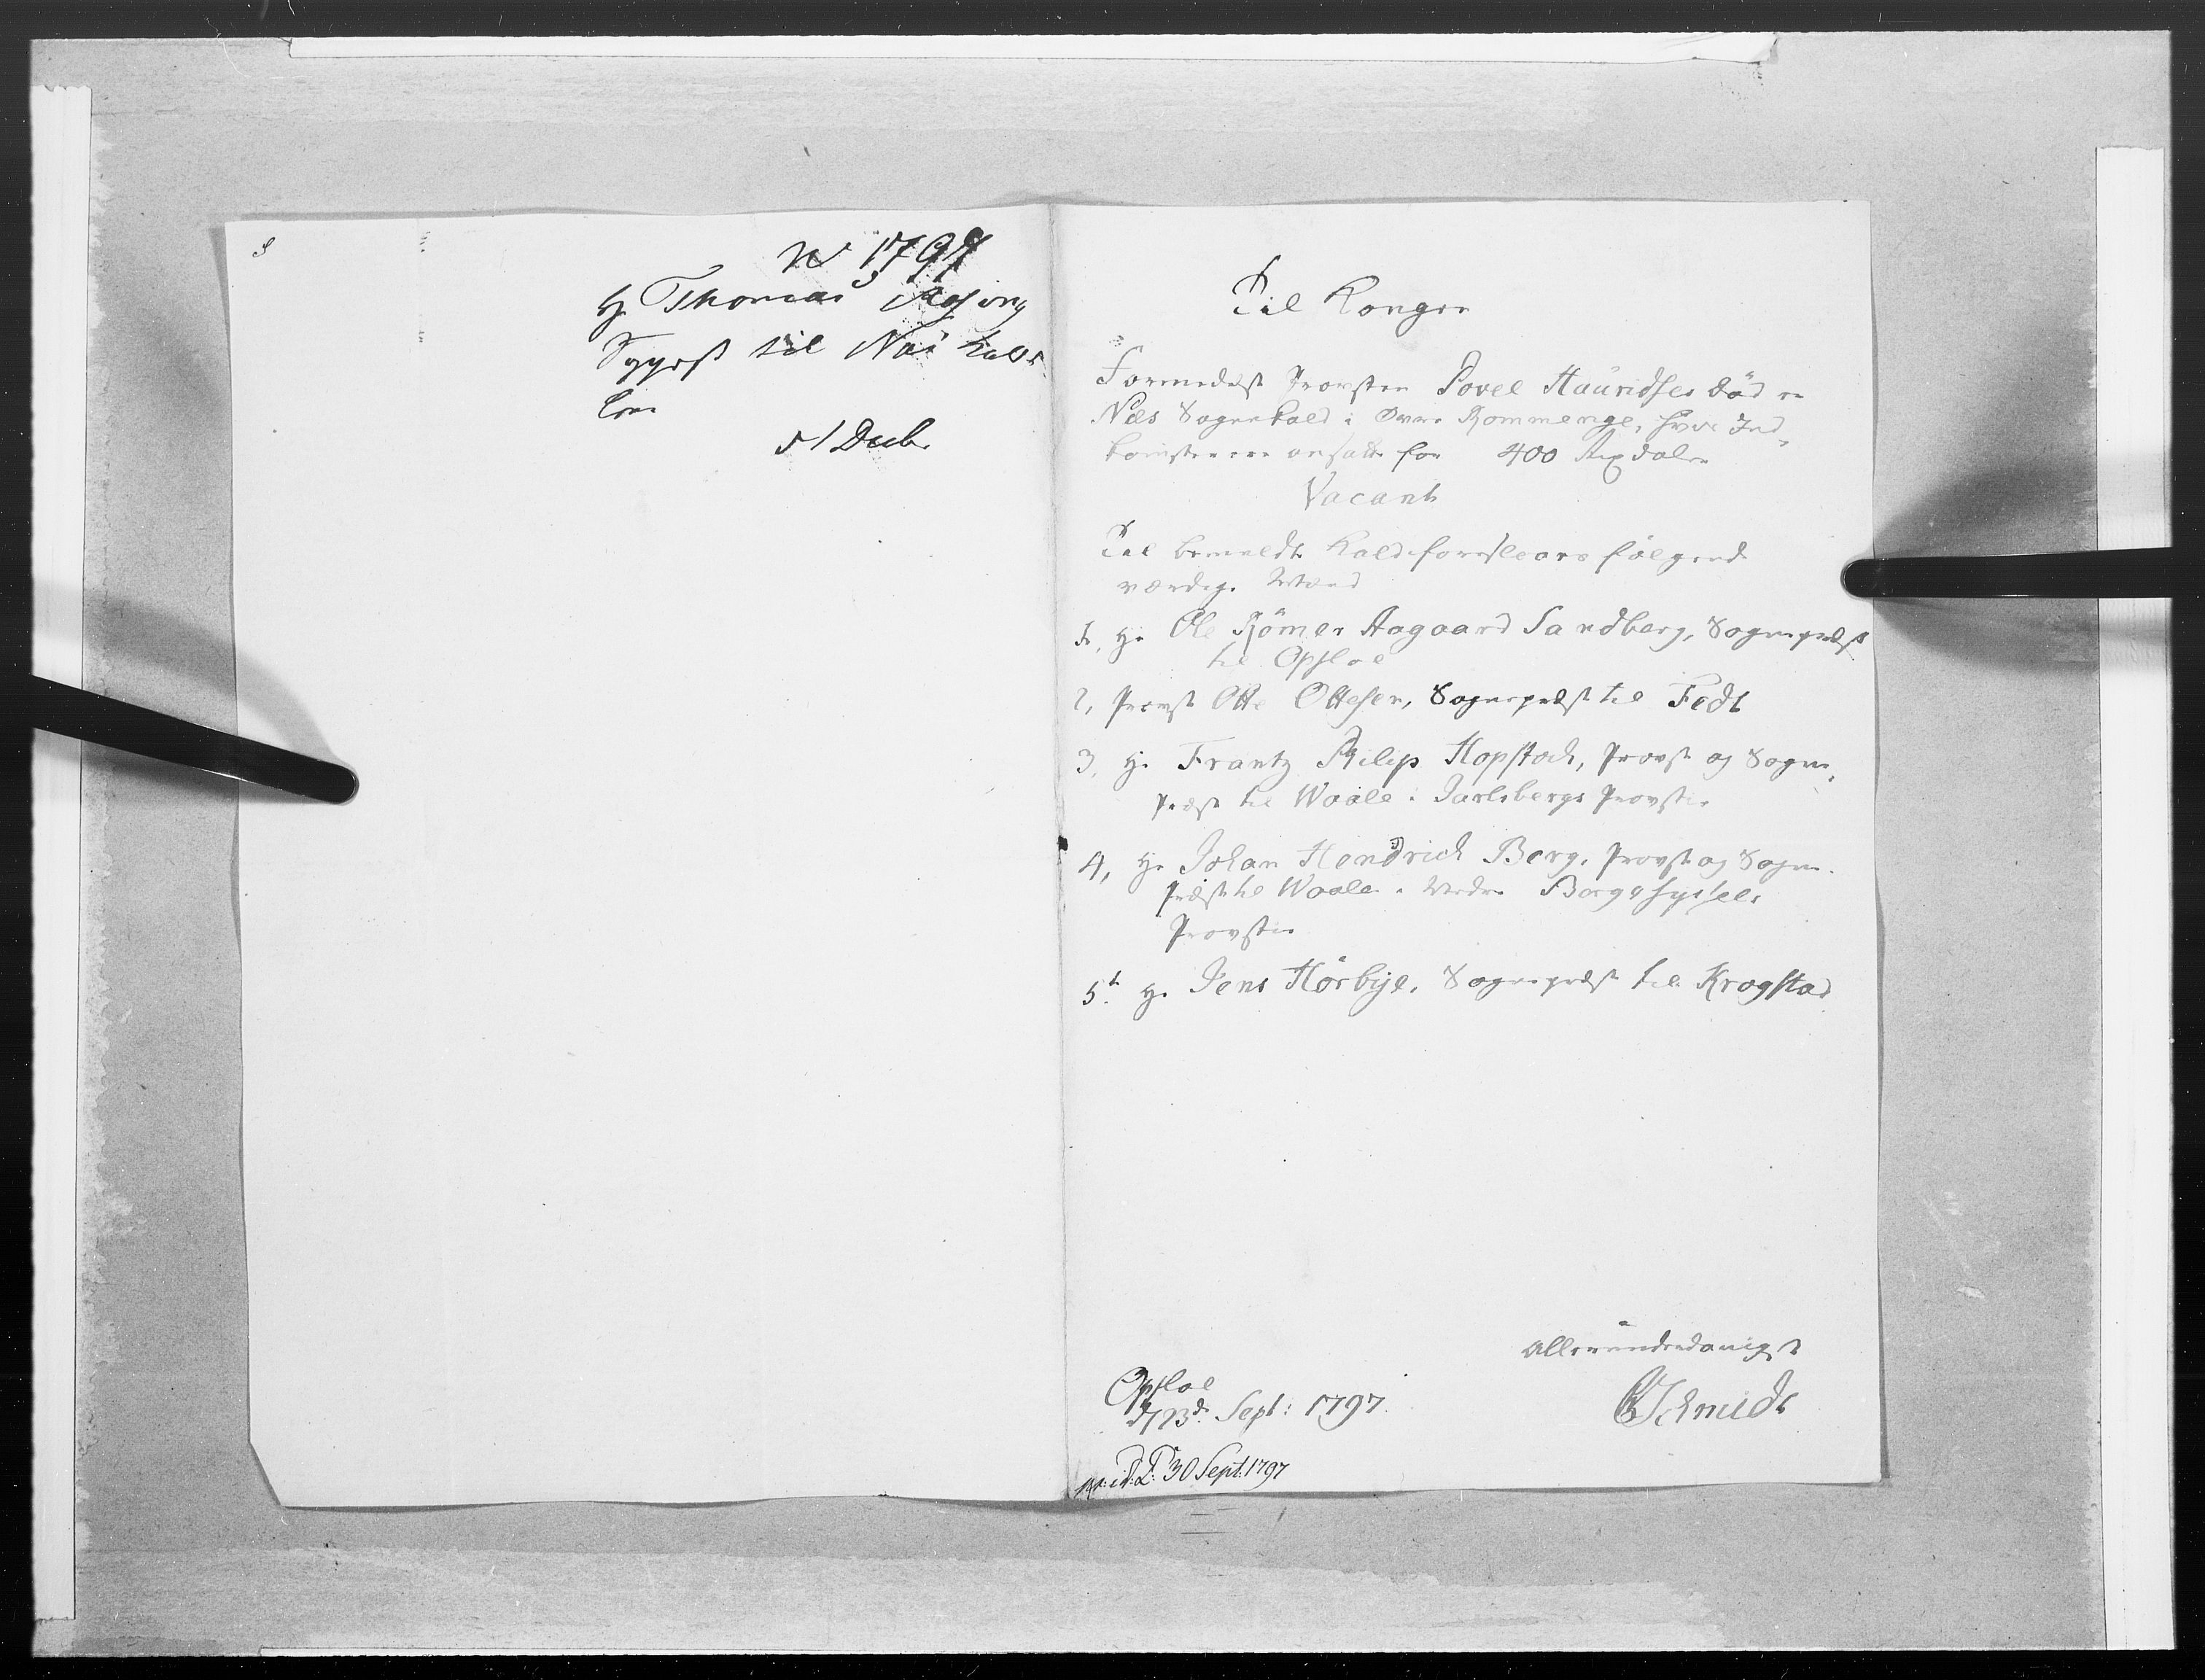 1797
Hr Thomas
til Næs Kald
Til Kongen
Formedelst Provsten Povel Hauridsens Död er
Næs Sognekald i Øvre Rommerige, hvis Ind-
komster ere ansatte for 400 Rixdaler
Vacant
Til bemeldte Kald foreslaaes fölgende
værdige Mænd
1, Hr Ole Römer Aagaard Sandberg, Sognepræst
til Opsloe
2, Provst Otte Ottesen, Sognepræst til Fedt
3, Hr Frantz Philip Hopstock, Provst og Sogne-
Præst til Waale i Jarlsbergs Provstie
4, Hr Johan Hendrich Berg, Provst og Sogne-
Præst til Waale i Nedre Borgesyssels
Provstie
5t Hr Jens Hörbye, Sognepræst til Krogstad
Allerunderdanigst
Opsloe
d 23de Sept: 1797.
Schmidt
30 Sept. 1797